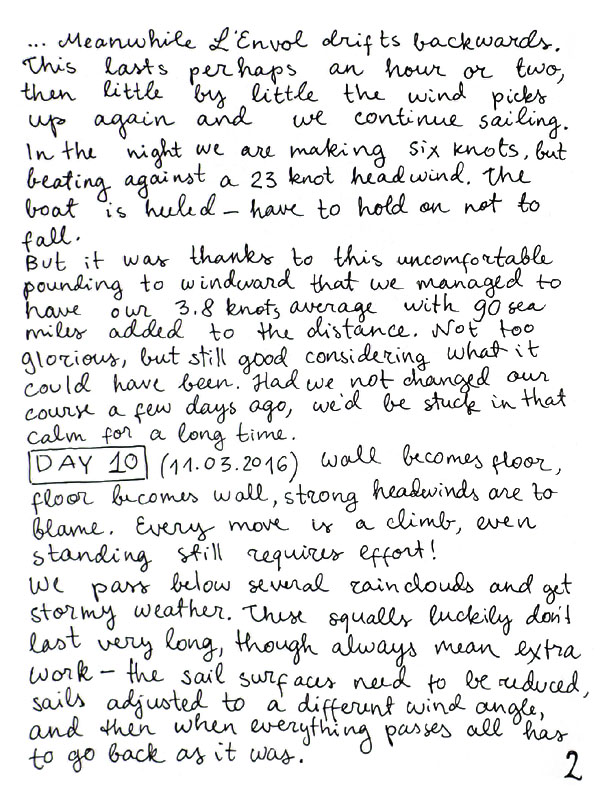 ... Meanwhile L'Envol drifts backwards.
This lasts perhaps an hour or two,
then little by little the wind picks
up again and we continue sailing.
In the night we are making six knots, but
beating against a 23 knot headwind. The
boat is heeled – have to hold on not to
fall.
But it was thanks to this uncomfortable
pounding to windward that we managed to
have our 3.8 knots average with 90 sea
miles added to the distance. Not too
glorious, but still good considering what it
could have been. Had we not changed our
course a few days ago, we'd be stuck in that
calm for a long time.
DAY 10 (11.03.2016) Wall becomes floor,
floor becomes wall, strong headwinds are to
blame. Every move is a climb, even
standing still requires effort!
We pass below several rainclouds and get
stormy weather. These squalls luckily don't
last very long, though always mean extra
work – the sail surfaces need to be reduced,
sails adjusted to a different wind angle,
and then when everything passes all has
to go back as it was.
2